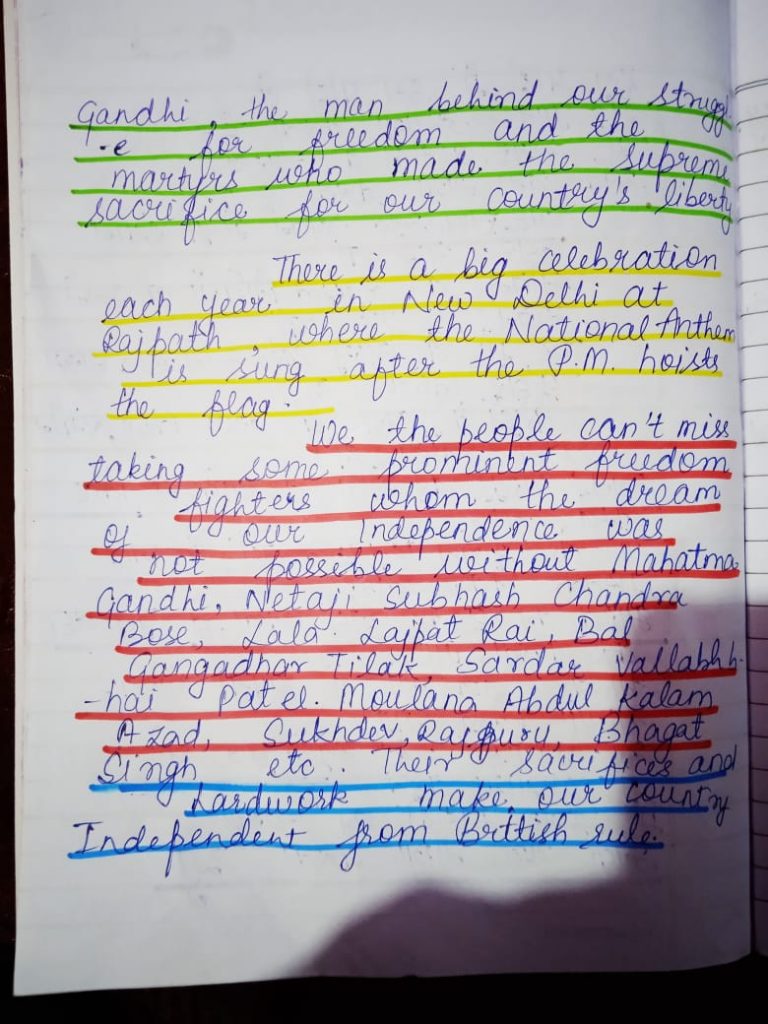 Gandhi, the man behind our struggl
-e for freedom and the
martyrs who made the supreme
sacrifice for our country's liberty
There is a big celebration
each year in New Delhi at
Rajpath, where the National Anthem
is sung after the P.M. hoists
the flag.
We the people can't miss
taking some prominent freedom
fighters whom the dream
of our Independence was
not possible without Mahatma
Gandhi, Netaji Subhash Chandra
Bose, Lala Lajpat Rai, Bal
Gangadhar Tilak, Sardar Vallabhb
-hai Patel. Moulana Abdul Kalam
Azad, Sukhdev, Rajguru, Bhagat
Singh etc. Their sacrifices and
hardwork make our country
Independent from Brttish rule.